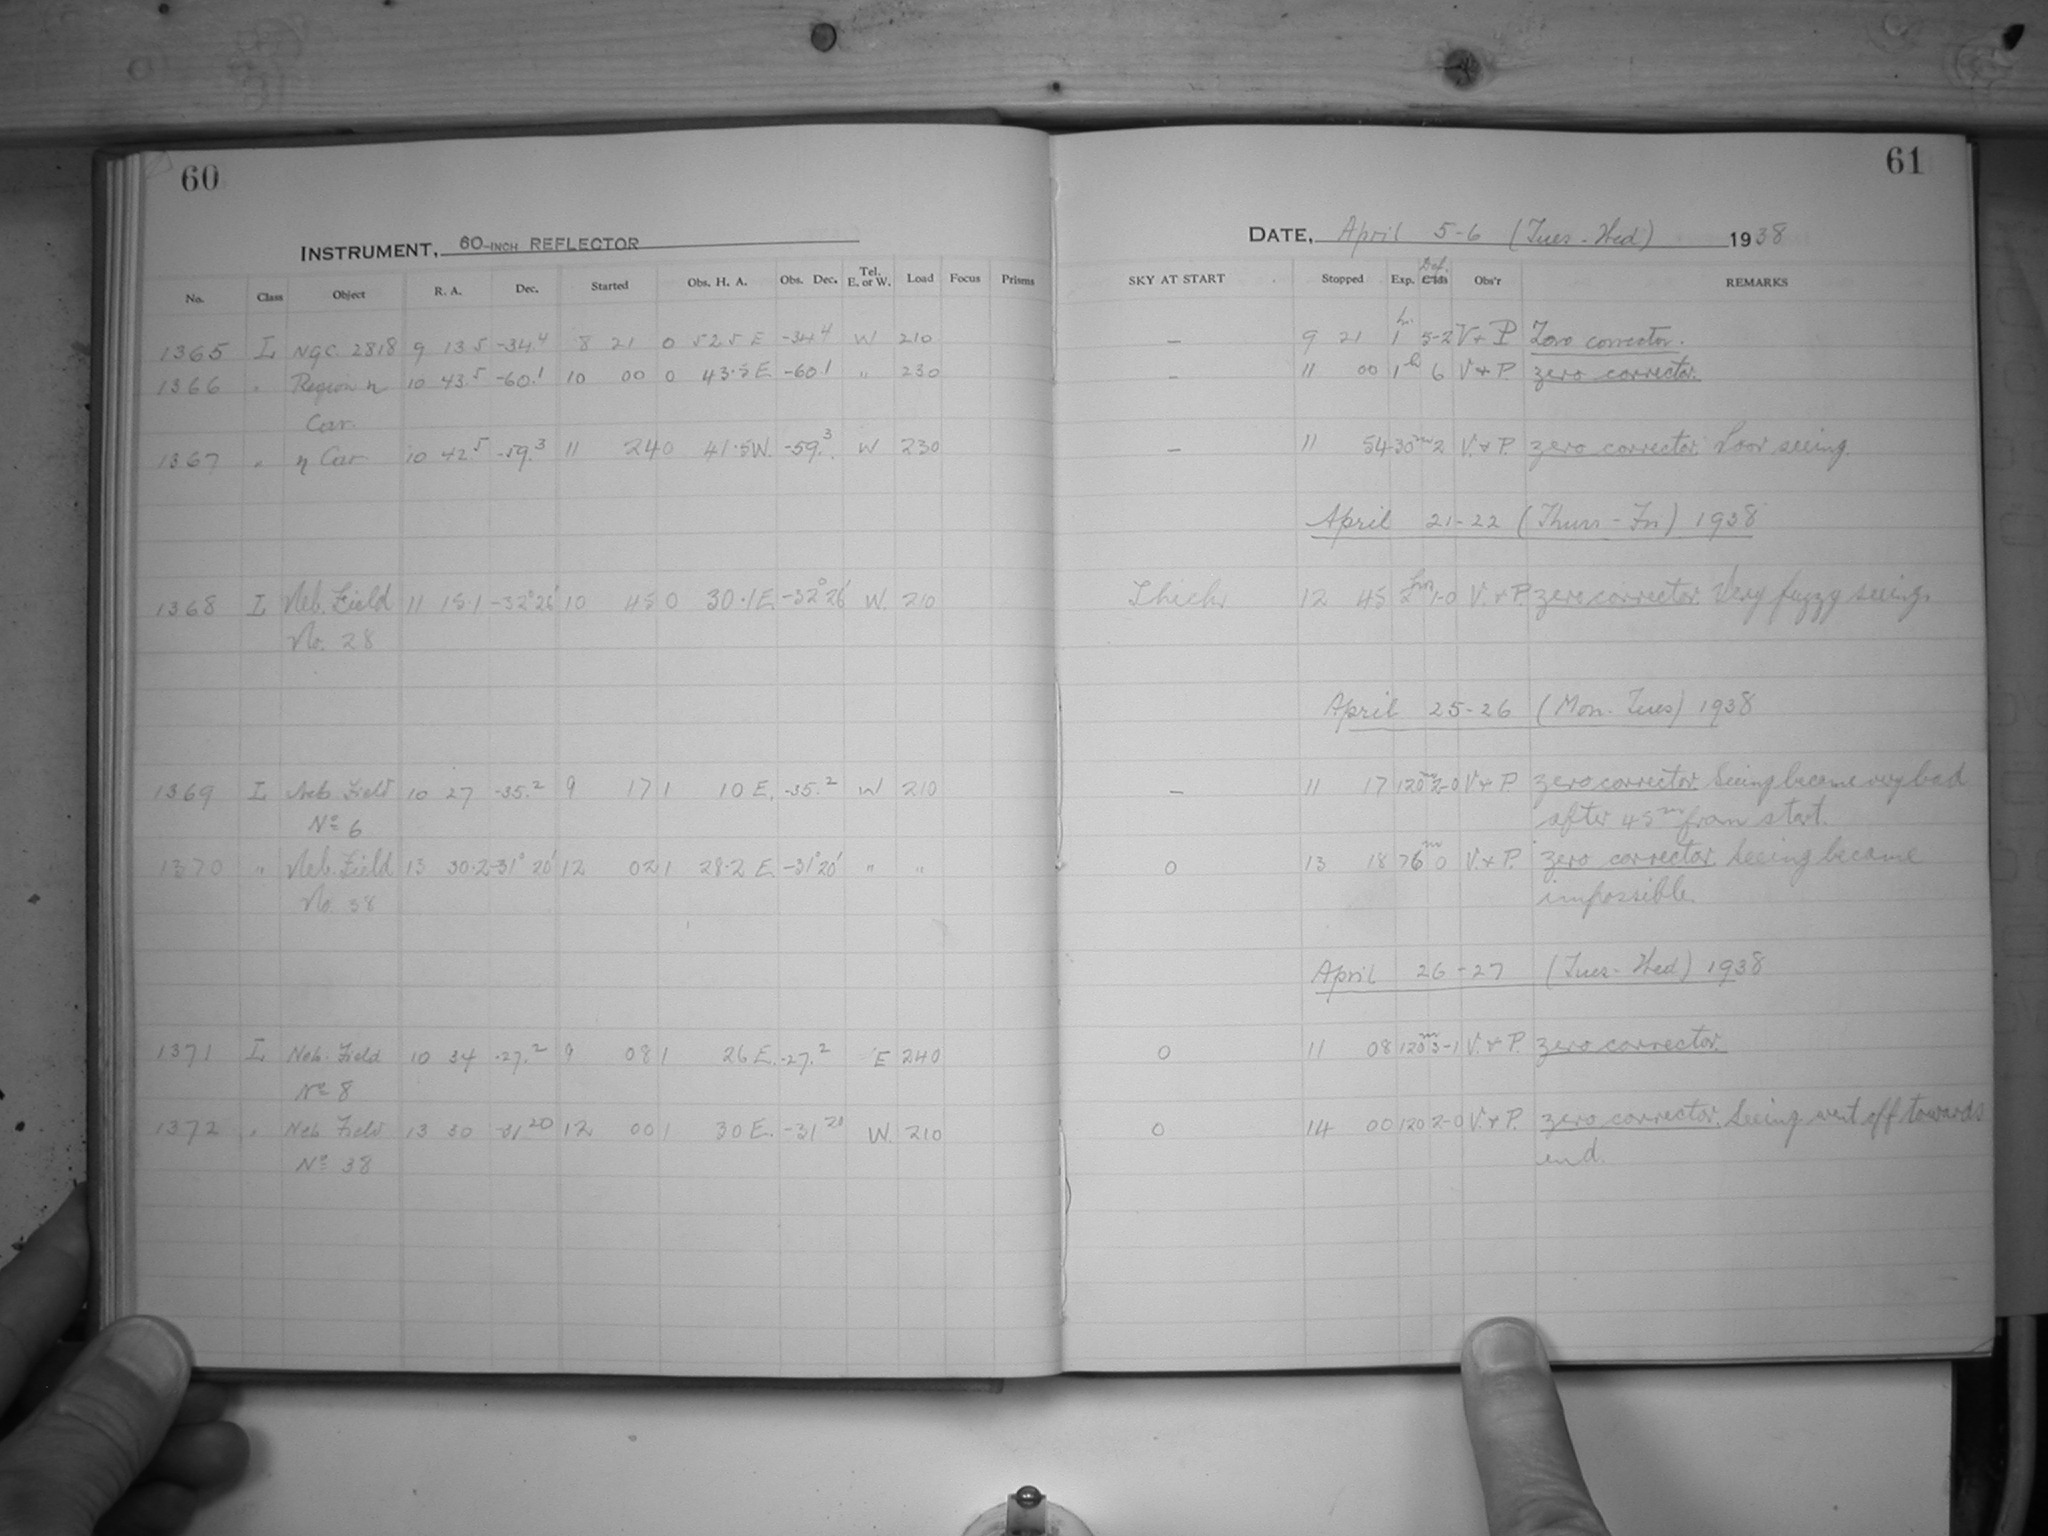 60
INSTRUMENT, 60-INCH REFLECTOR
No. Class Object R. A. Dec. Started Obs. H. A. Obs. Dec. Tel. E. or W. Load Focus Prisms
1365 I NGC 2818 9 13.5 -34.4 8 21 0 52.5 E -34.4 W 210
1366 " Region η 10 43.5 -60.1 10 00 0 43.5 E -60.1 " 230
Car.
1367 " η Car 10 42.5 -59.3 11 24 0 41.5 W. -59.3 W 230
1368 I Neb. Field 11 15.1 -32°26' 10 45 0 30.1 E -32°26' W. 210
No. 28
1369 I Neb. Field 10 27 -35.2 9 17 1 10 E. -35.2 W 210
Nº 6
1370 " Neb. Field 13 30.2 -31°20' 12 02 1 28.2 E -31°20' " "
No. 38
1371 I Neb. Field 10 34 -27.2 9 08 1 26 E. -27.2 E 240
Nº 8
1372 " Neb. Field 13 30 -31 20 12 00 1 30 E. -31 20 W. 210
Nº 38
61
DATE, April 5-6 (Tues - Wed) 1938
SKY AT START Stopped Exp. Def. Obs'r REMARKS
— 9 21 1 hr. 5-2 V + P Zero corrector.
— 11 00 1 h 6 V + P. zero corrector.
— 11 54 30 m 2 V. + P. zero corrector. Poor seeing.
April 21-22 (Thurs - Fri) 1938
Thick 12 45 2 hrs 1-0 V. + P. zero corrector. Very fuzzy seeing.
April 25-26 (Mon. Tues) 1938
— 11 17 120 m 2-0 V + P. zero corrector. Seeing became very bad
after 45 m from start.
0 13 18 76 m 0 V. + P. zero corrector. Seeing became
impossible.
April 26-27 (Tues - Wed) 1938
0 11 08 120 m 3-1 V. + P. zero corrector.
0 14 00 120 2-0 V. + P. zero corrector. Seeing went off towards
end.